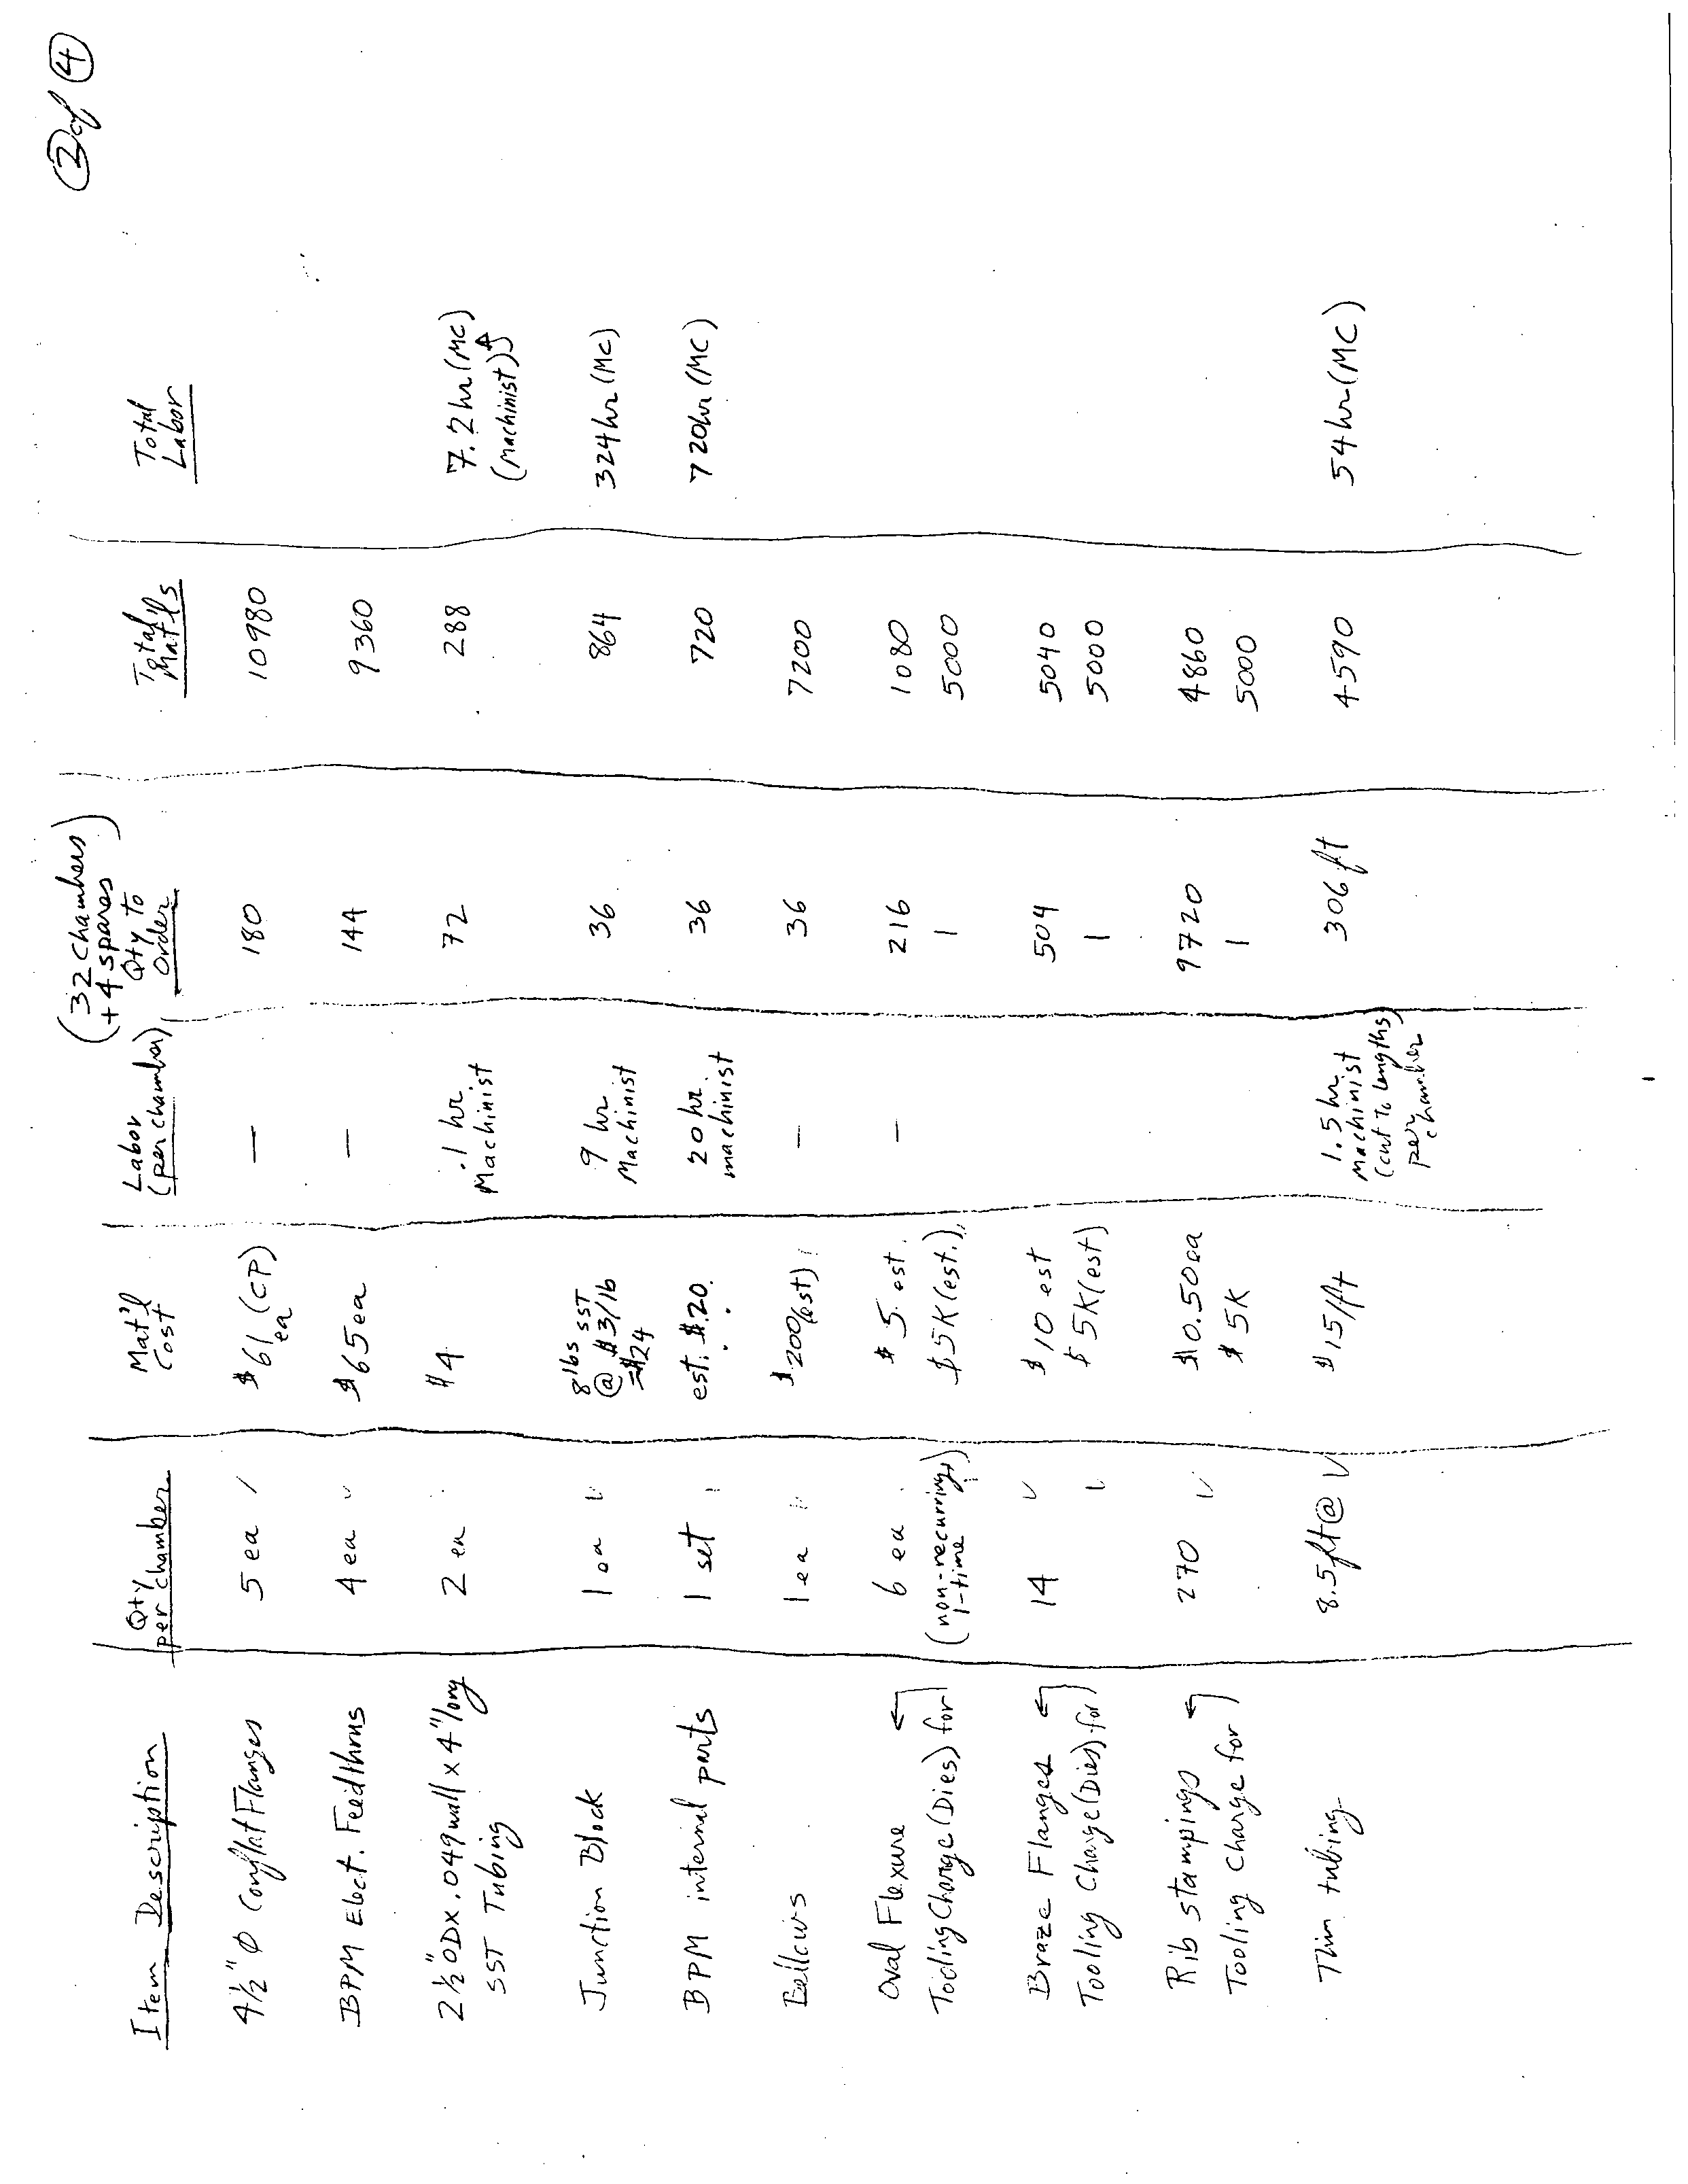 2 of 4
(32 chambers
+ 4 spares)
Item Description | Qty per chamber | Mat'l Cost | Labor (per chamber) | Qty to Order | Total Mat'ls | Total Labor
4½" Ø Conflat Flanges | 5 ea | $61 (CP) ea | — | 180 | 10980
BPM Elect. Feedthrus | 4 ea | $65 ea | — | 144 | 9360
2½" OD x .049 wall x 4" long | 2 ea | $4 | .1 hr | 72 | 288 | 7.2 hr (MC)
SST Tubing | Machinist | (machinist)
Junction Block | 1 ea | 8 lbs SST @ $3/lb = $24 | 9 hr Machinist | 36 | 864 | 324 hr (MC)
BPM internal parts | 1 set | est. $20. | 20 hr machinist | 36 | 720 | 720 hr (MC)
Bellows | 1 ea | $200 (est) | — | 36 | 7200
Oval Flexure | 6 ea | $5 est. | — | 216 | 1080
Tooling Charge (Dies) for | (non-recurring, 1-time) | $5K (est.) | 1 | 5000
Braze Flanges | 14 | $10 est | 504 | 5040
Tooling Charge (Dies) for | $5K (est) | 1 | 5000
Rib stampings | 270 | $0.50 ea | 9720 | 4860
Tooling Charge for | $5K | 1 | 5000
Thin tubing | 8.5 ft @ | $15/ft | 1.5 hr. Machinist (cut to lengths) per chamber | 306 ft | 4590 | 54 hr (MC)